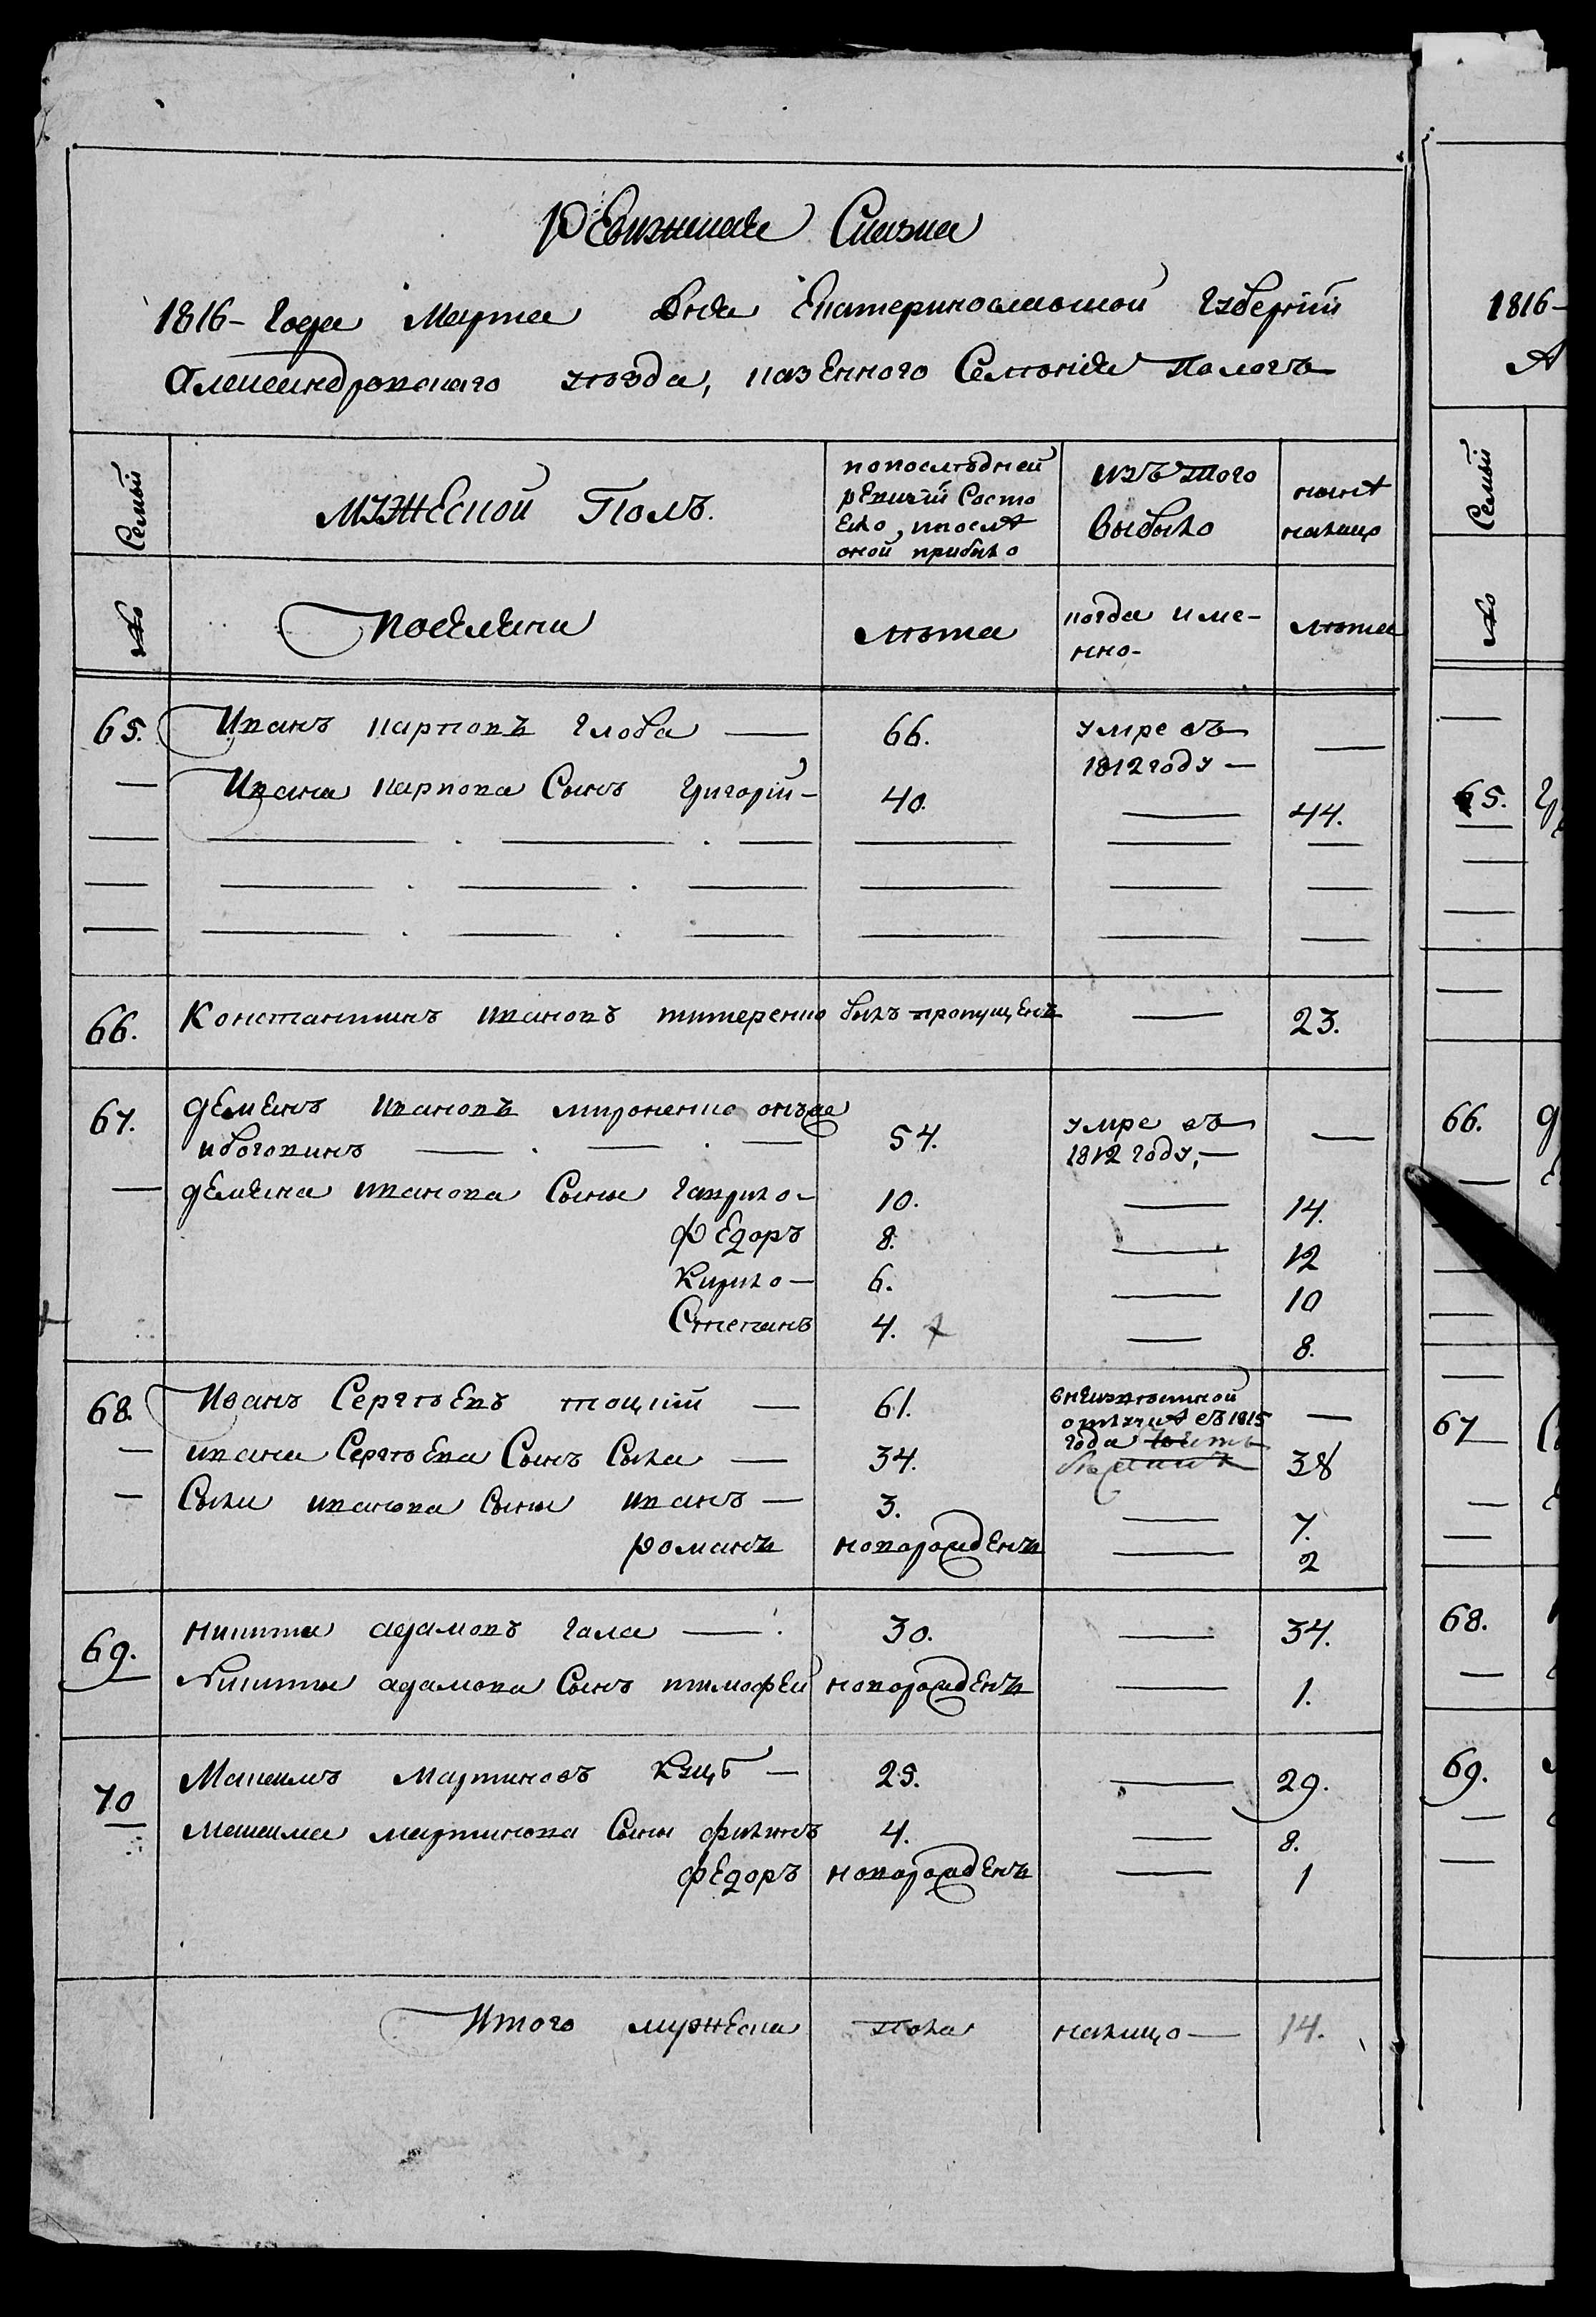 Ревижская Сказка
1816- Года Марта дня Екатеринославской Губерніи
Александровскаго уѣзда, казенного Селенія Пологъ
Семьи
мужеской Полъ.
попослѣдней ревизіи Состо яло, ипослѣ оной прибыло
изъ того выбыло
нынѣ налицо
№
поселяни
лѣта
когда име-нно-
лѣта
65. Иванъ Карповъ Глоба — 66. умре въ 1812 году — —
— Ивана Карпова Сынъ Григорій — 40. — 44.
66. Константинъ Ивановъ титеренко былъ пропущенъ — 23.
67. Деменъ Ивановъ мироненко онъже
иБоговинъ — 54. умре въ 1812 году, — —
— Демяна Иванова Сыны Гаврило — 10. — 14.
Федоръ 8. — 12
Кирило — 6. — 10
Степанъ 4. — 8.
68. Иванъ Сергѣевъ тоцкій — 61. внеизвѣстной отлучкѣ съ 1815 года —
— Ивана Сергѣева Сынъ Сыла — 34. 38
— Сылы Иванова Сыны Иванъ — 3. — 7.
романъ новорожденъ — 2
69. Никита адамовъ гала — 30. — 34.
Никиты адамова Сынъ тимофей новорожденъ — 1.
70 Максимъ Мартиновъ Куцъ — 25. — 29.
Максима Мартинова Сыны филипъ 4. — 8.
федоръ новорожденъ — 1
Итого мужеска пола налицо — 14.
1816-
А
Семьи
№
65.
66.
67
68.
69.